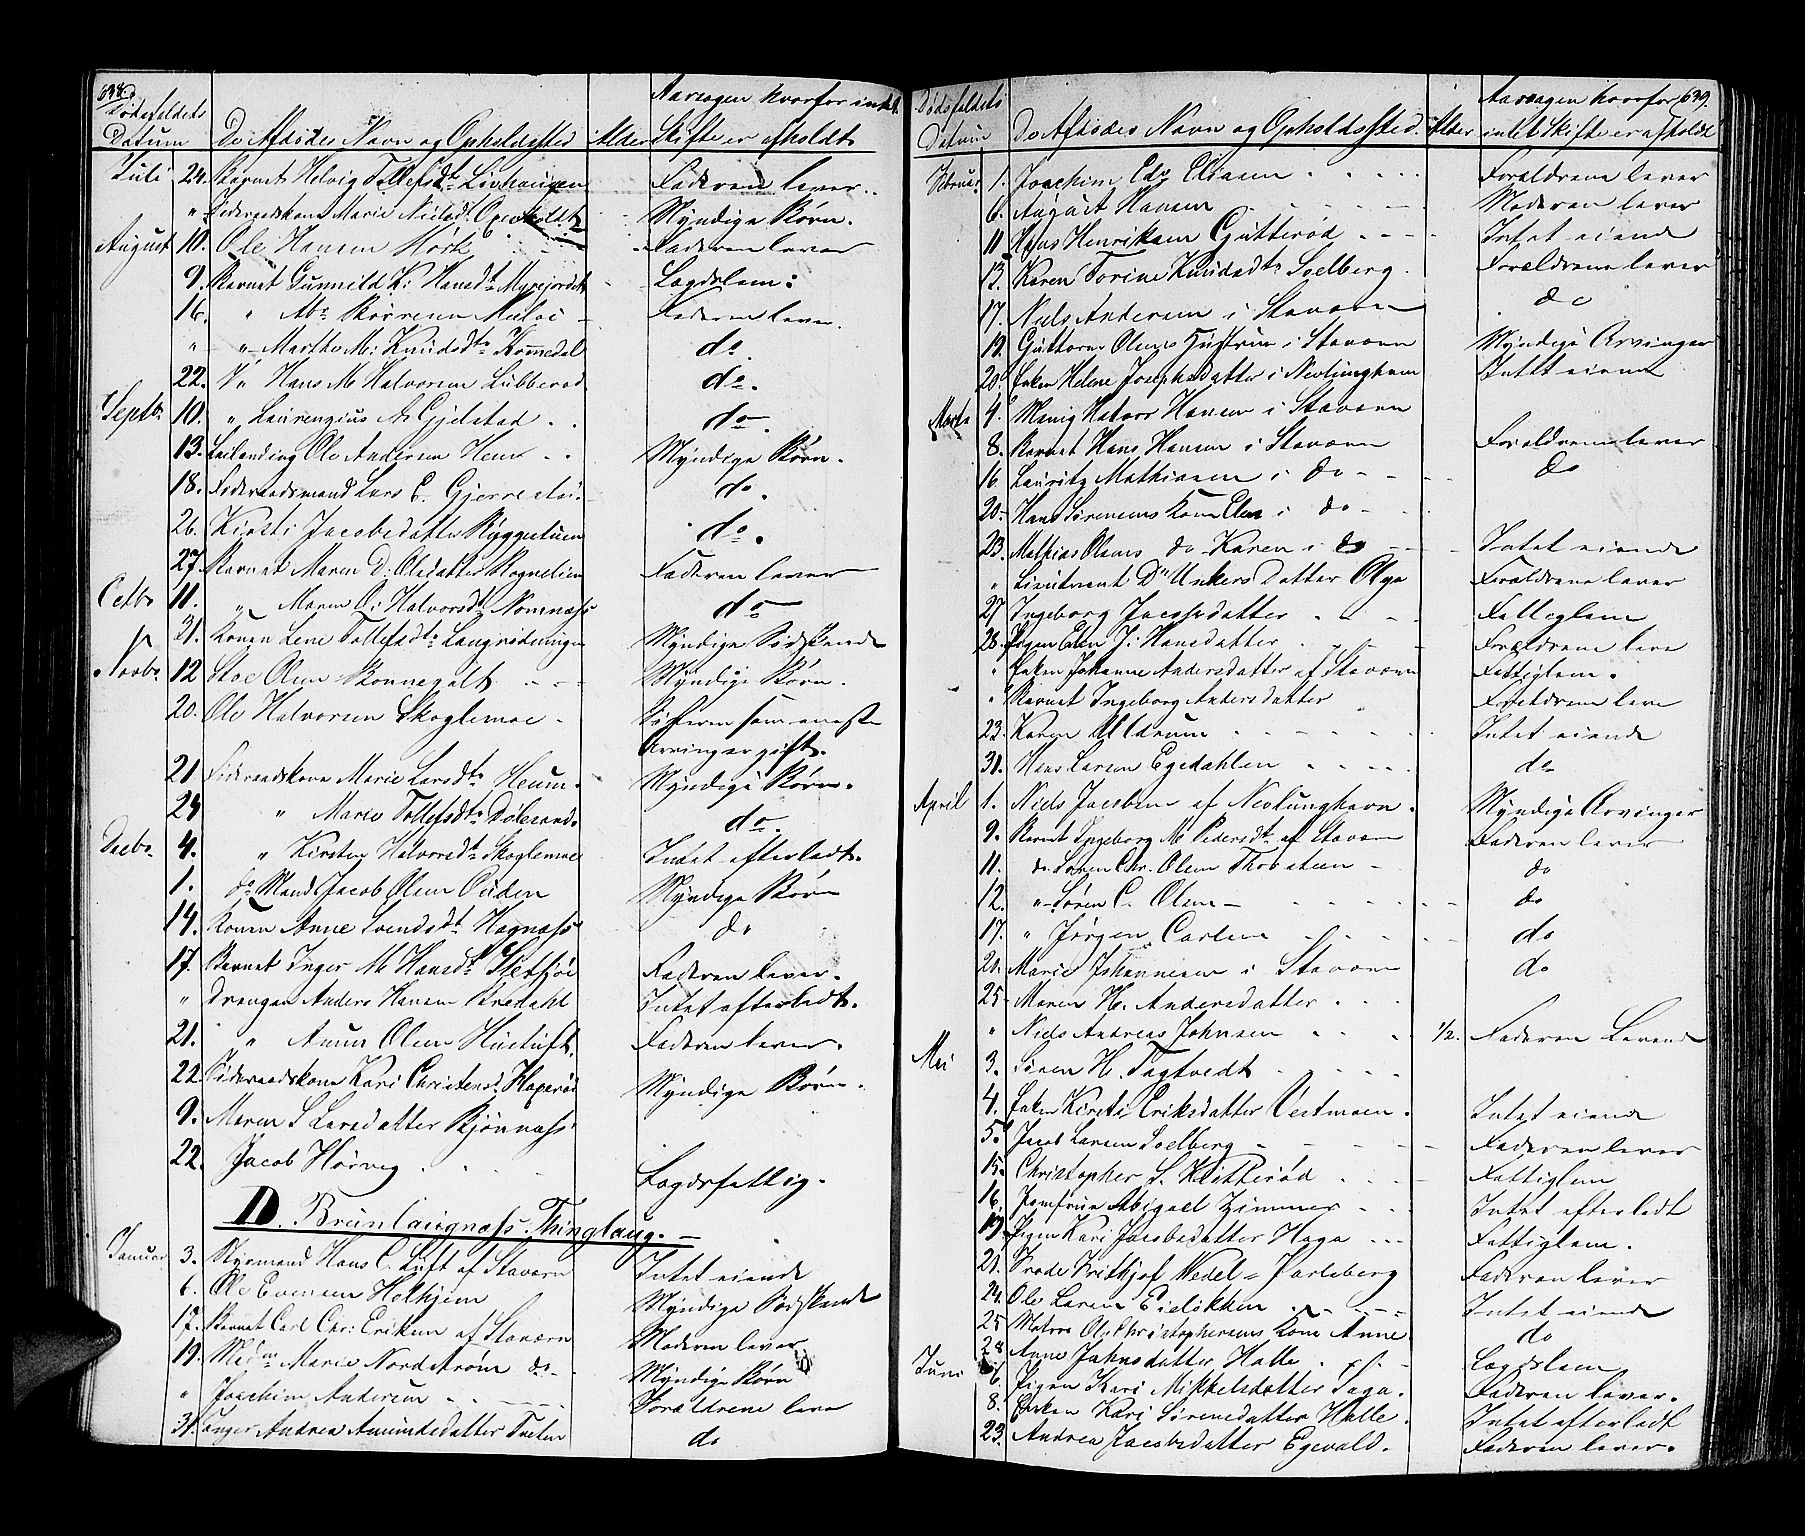 638.
Dødsfaldets Aarsagen hvorfor intet
Datum De Afdødes Navn og Opholdssted Alder Skifte er afholdt
Juli 24. Barnet Helvig Tollefsdt. Faderen lever.
" Føderaadskone Marie Nielsdt. Myndige Børn.
August 10. Ole Hansen Mørk Faderen lever
9. Barnet Gunnild K: Hansdt. Myrejordet Lægdslem:
16. " Abr. Faderen lever.
" " Marthe M: Knudsdtr. do.
22. " Hans M Halvorsen Lübberød do.
Septbr. 10. " Laurenzius A. Gjelstad do.
13. Leilænding Ole Andersen Hem Myndige Børn.
18. Føderaadsmand Lars E. do.
26. Kirsti Jacobsdatter do.
27. Barnet Maren D. Olsdatter Faderen lever
Octbr 11. " Maren O: Halvorsdt. Nomnæss do
21. Konen Lene Tollefsdtr. Langrødningen Myndige Sødskende
Novbr. 12 Olsen Myndige Børn.
20. Ole Halvorsen Skoglemoe Søsteren som eneste
Arving er gift.
21. Føderaadskone Marie Larsdtr. Heum. Myndige Børn.
24 " Marie Tollefsdtr. do.
Decbr. 4. " Kirsten Halvorsdtr. Skoglemoe Intet efterladt.
1. do Mand Jacob Olsen Myndige Børn
14. Konen Anne Svendsdt. Hagnæss do
17. Barnet Inger M Hansdt. Faderen lever.
" Drengen Anders Hansen Bredahl Intet efterladt.
21. " Olsen Faderen lever.
22 Føderaadskone Kari Christensd. Myndige Børn.
9. Maren S Larsdatter Bjønnæss
22. Jacob Hørveg Lægdsfattig.
D. Brunlaugnæss Thinglaug.
Januar 3. Styrmand Hans C. Luft af Stavern Intet eiende
6. Ole Evensen Holhjem Myndige Sødskende
17. Barnet Carl Chr: Eriksen af Stavern Moderen lever
19. Madm Marie Nordstrøm do Myndige Børn
" Joachim Andersen Forældrene lever
31. Inger Andrea Amundsdatter do
639.
Dødsfaldets Aarsagen hvorfor
Datum De Afdødes Navn og Opholdssted. Alder intet Skifte er afholdt
Februar 1. Joachim Edv. Forældrene lever
6. August Hansen Moderen lever
11 Hans Henriksen Gutterød Intet eiende
13. Karen Torine Knudsdtr Solberg. Forældrene lever
17. Niels Andersen i Stavern do
19. Guttorm Olsens Hustrue i Stavern Myndige Arvinger
20. Enken Helene Josephsdatter i Nevlunghavn Intet eiende
Marts 4. Halvor Hansen i Stavern
8. Barnet Hans Hansen i Stavern Forældrene lever
16. Lauritz Mathiasen i do do
20. Hans Sørensens Kone Elen i do
23. Mathias Olsens do Karen i do Intet eiende
" Lieutnant Dn Unkers Datter Olga Forældrene lever
27 Ingeborg Jacobsdatter Fattiglem
28. Pigen Elen J: Hansdatter Forældrene leve
" Enken Johanne Andersdatter af Stavern Fattiglem.
" Barnet Ingeborg Andersdatter Forældrene leve
23. Karen Intet eiende
31. Hans Larsen Egedahlen do
April 1. Niels Jacobsen af Nevlunghavn. Myndige Arvinger
9. Barnet Ingeborg M. Pedersdt. af Stavern Faderen lever
11. do Søren Chr. Olsen do
12. " Søren C. Olsen do
17. " Jørgen Carlsen do
20. Marie Johannesen i Stavern do
25 Maren H. Andersdatter
" Niels Andreas Johnsen 1/2. Faderen Levende
Mai 3. Søren H. Tagtvedt
4. Enken Kirsti Eriksdatter Vestmoen. Intet eiende
5. Jacob Larsen Solberg Faderen lever
15. Christopher S. Kletterød Fattiglem
16. Jomfrue Abigael Zimmer Intet efterladt
19. Pigen Kari Jacobsdatter Haga Fattiglem.
21. Frode Frithjof Wedel = Jarlsberg Faderen lever
24. Ole Larsen Intet eiende
25 Matros Ole Christophersens Kone Anne do
28 Anne Johnsdatter Halle Lægdslem
Juni 6 Pigen Kari Mikkelsdatter Saga. Faderen lever.
8. Enken Kari Sørensdatter Halle. Intet efterladt
23. Andrea Jacobsdatter Egevald. Faderen lever.